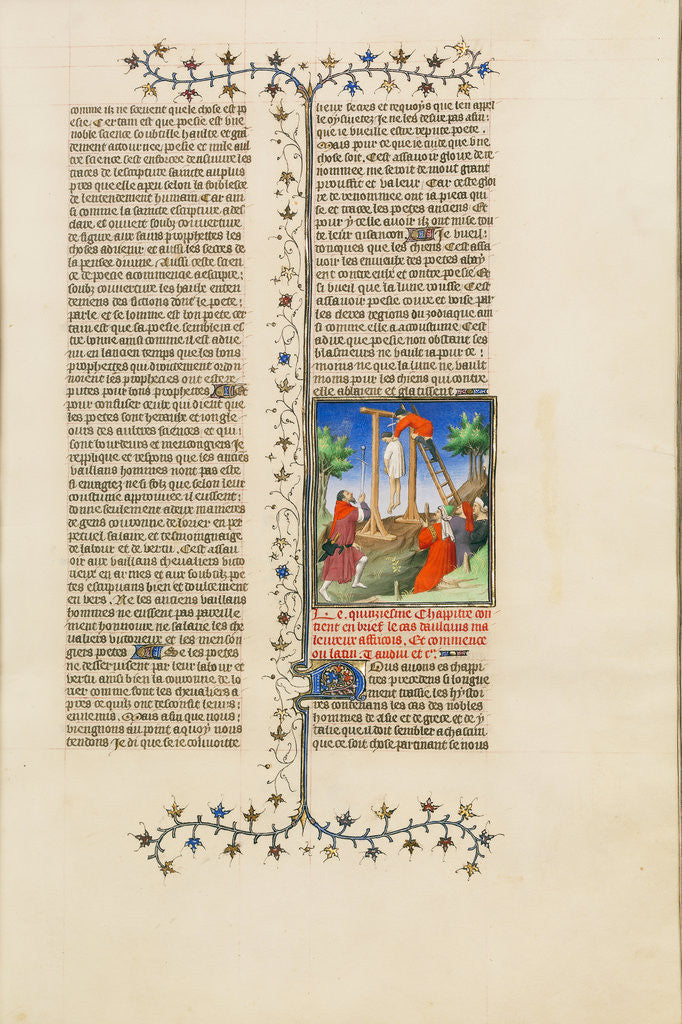 comme ilz ne scevent que le chose est po
esie Certain est que poesie est une
noble science soubtille haulte et gra
dement atournee poesie et mile aul
tre science sest enforcee densuivre les
traces de lescripture saincte au plus
pres que elle a peu selon la foiblesce
de lentendement humain Car ain
si comme la saincte escripture a des
claire et ouvert soubz couverture
de figure aux sains prophettes les
choses advenir et aussi les secres de
la pensee divine Aussi ceste scien
ce de poesie a commence a escripre
soubz couverture les haulx enten
demens des fictions dont le poete
parle et se lomme est bon poete cer
tain est que sa poesie semblera es
tre bonne ainsi comme il est adue
nu en lancien temps que les bons
prophettes qui droictement ordon
noient les propheties ont este re
putes pour bons prophettes Et
pour confuser ceulx qui dient que
les poetes sont heraulx et iongle
ours des aultres sciences et qui
sont bourdeurs et mencongiers Je
replique et respons que les anciens
vaillans hommes nont pas este
si enragiez ne si folz que selon leur
coustume approuvee ilz eussent
donne seulement a deux manieres
de gens couronne de lorier en per
petuel salaire et tesmoignaige
de labour et de vertu Cest assa
voir aux vaillans chevaliers victo
rieux en armes et aux soubtilz poe
tes escripvans bien et doulcement
en vers Ne les anciens vaillans
hommes ne eussent pas pareille
ment honnoure ne salarie les che
valiers victorieux et les menson
giers poetes Se les poetes
ne desservissent par leur labour et
vertu ainsi bien la couronne de lo
rier comme font les chevaliers a
pres ce quilz ont desconfit leurs
ennemis Mais afin que nous
viengnons au point a quoy nous
tendons Je di que se ie couvoitte
lieur secres et requoys que len appel
le oysivetez Je ne les desire pas afin
que ie vueille estre repute poete
Mais pour ce que ie cuide que une
chose soit Cest assavoir gloire de re
nommee me seroit de mout grant
prouffit et valeur Car ceste gloi
re de renommee ont ia pieca qui
se et tracee les poetes anciens Et
pour ycelle avoir ilz ont mise tou
te leur cusancon Je vueil
doncques que les chiens Cest assa
voir les envieux des poetes abay
ent contre eulx et contre poesie Et
si vueil que la lune voisse Cest
assavoir poesie coure et voise par
les cleres regions du zodiaque ain
si comme elle a acoustume Cest
a dire que poesie non obstant ses
blasmeurs ne vault ia pour ce
moins ne que la lune ne vault
moins pour les chiens qui contre
elle abaient et glatissent
Le quinziesme Chappitre con
tient en brief le cas daulcuns ma
leureux affricois Et commence
ou latin T audivi et cetera
Nous avons es chappi
tres precedens si longue
ment trasse les hystoi
res contenans les cas des nobles
hommes de asie et de grece et de y
talie que il doit sembler a chascun
que ce soit chose partinant se nous